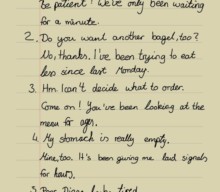 be patient! We've only been waiting
for a minute.
2. Do you want another bagel, too?
No, thanks. I've been trying to eat
less since last Monday.
3. Hm I can't decide what to order.
Come on! You've been looking at the
menu for ages.
4. My stomach is really empty.
Mine, too. It's been giving me loud signals
for hours.
5. Poor Diana
tired